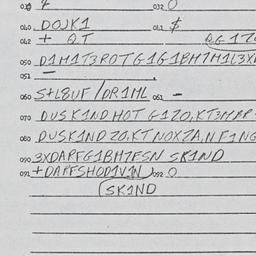 030 032 0
040 DOJK1 041 $
042 + QT
050 D1M1T3ROTG1G1BM7M1L3X
051 -
060 S+L8UF/DR1ML 061 -
070 DUSK1ND HOT G1ZO,KT3MPP
080 DUSK1ND ZO,KT NOXZA,N F1NG
090 3XDAPFG1BM7FSN SK1ND
091 +DAPFSHOD1V1N 092 0
SK1ND